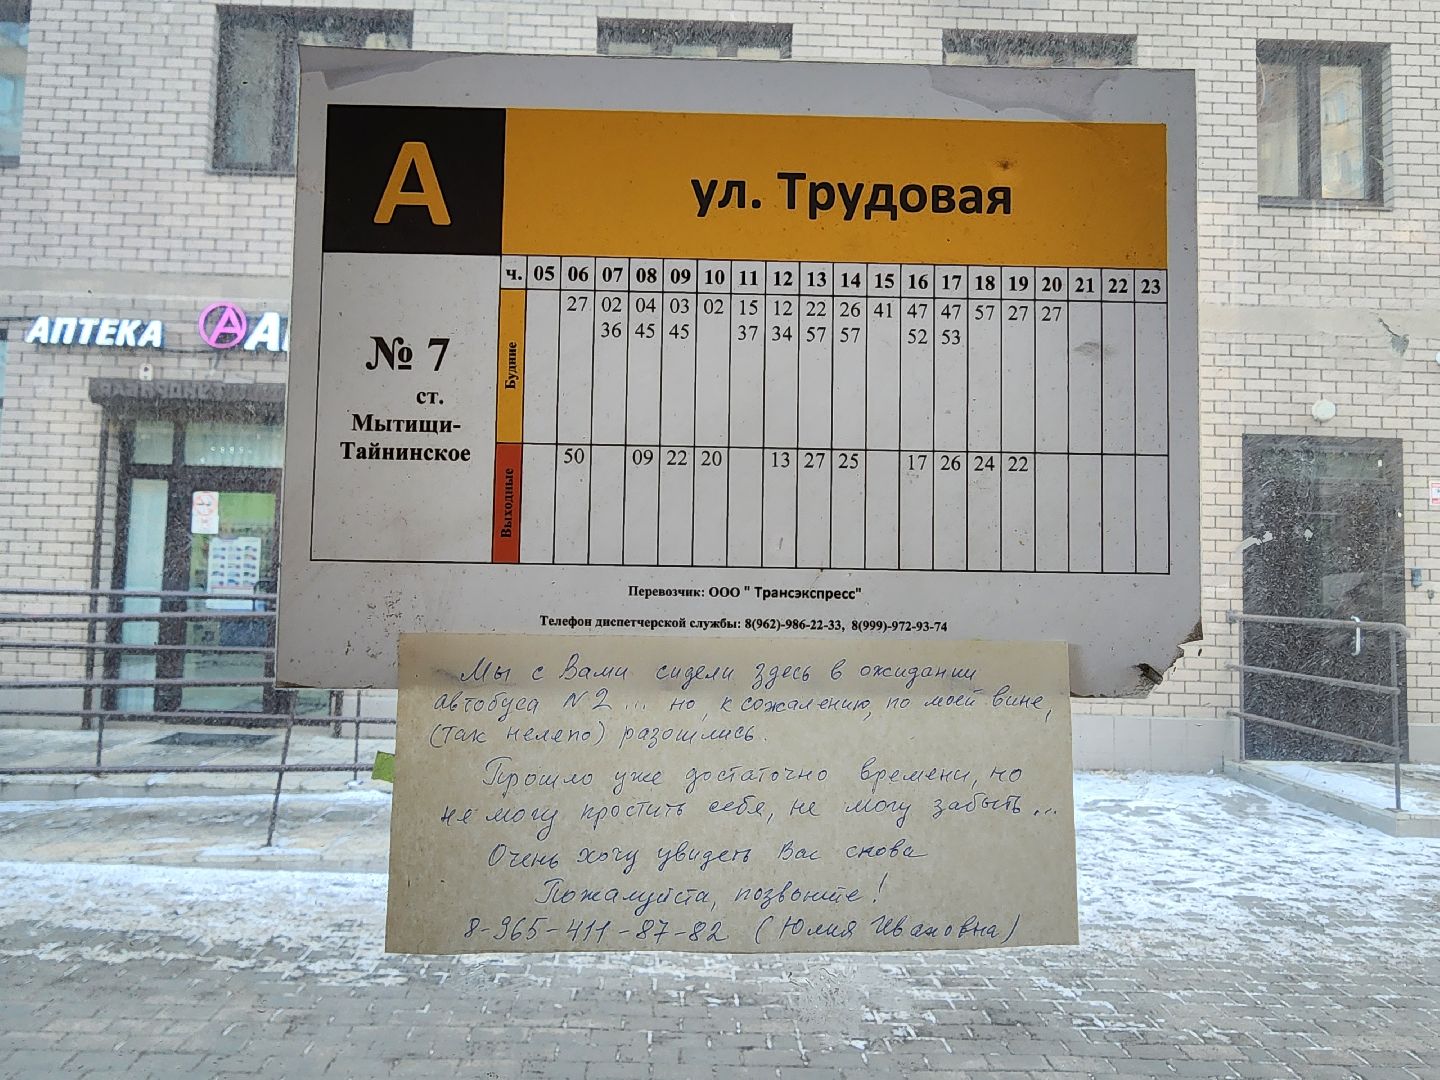 АПТЕКА А
А
ул. Трудовая
№ 7
ст.
Мытищи-
Тайнинское
ч. 05 06 07 08 09 10 11 12 13 14 15 16 17 18 19 20 21 22 23
Будние
27 02 04 03 02 15 12 22 26 41 47 47 57 27 27
36 45 45 37 34 57 57 52 53
Выходные
50 09 22 20 13 27 25 17 26 24 22
Перевозчик: ООО " Трансэкспресс"
Телефон диспетчерской службы: 8(962)-986-22-33, 8(999)-972-93-74
Мы с Вами сидели здесь в ожидании
автобуса N2... но, к сожалению, по моей вине,
(так нелепо) разошлись.
Прошло уже достаточно времени, но
не могу простить себя, не могу забыть...
Очень хочу увидеть Вас снова
Пожалуйста, позвоните!
8-965-411-87-82 (Юлия Ивановна)